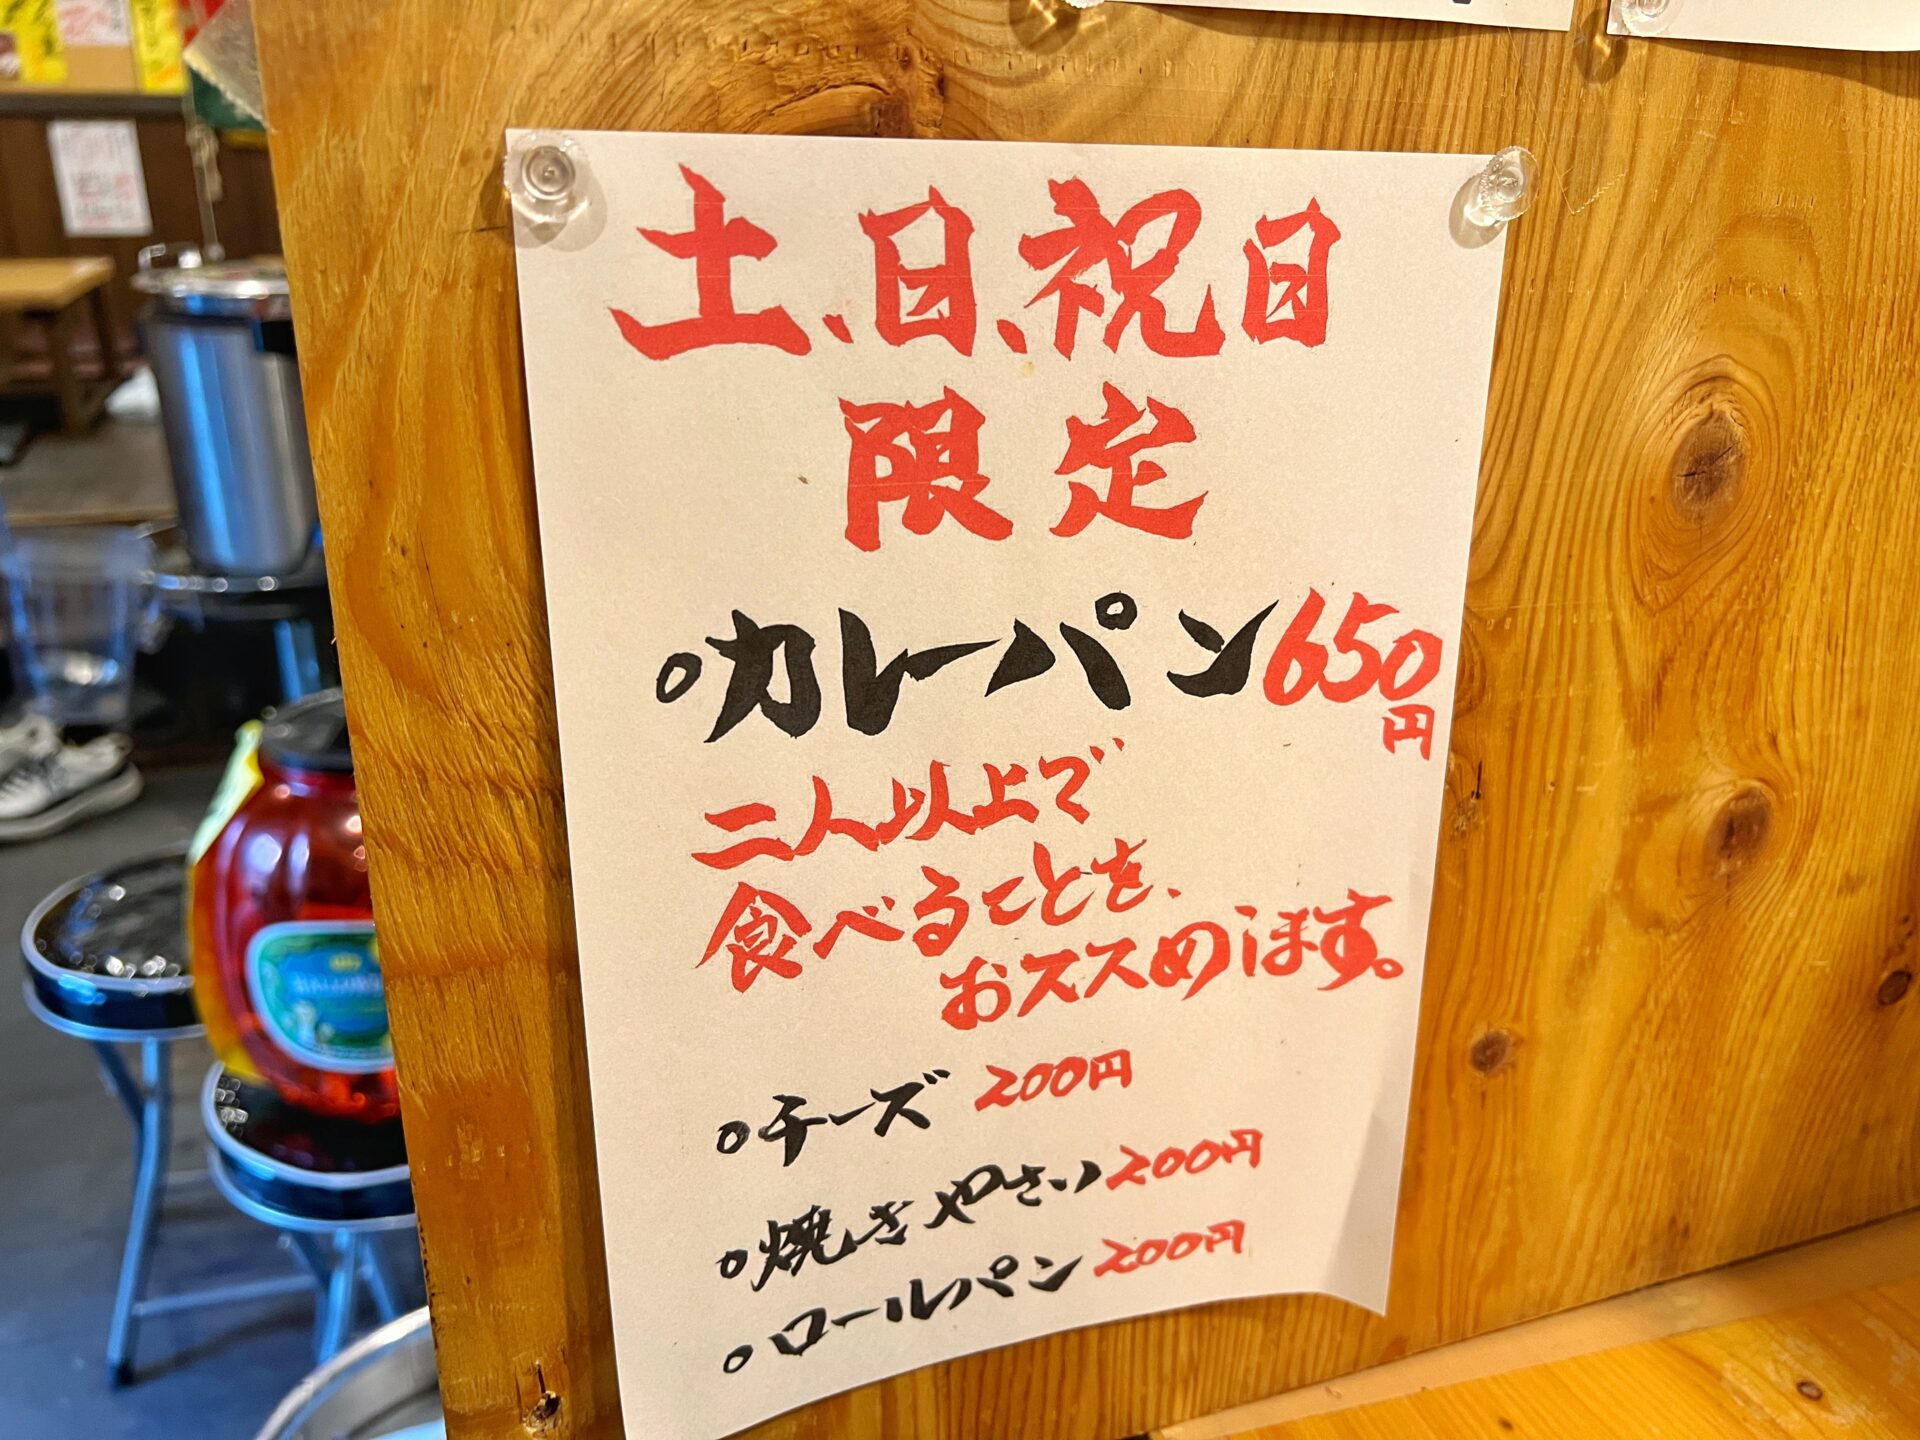 土、日、祝日
限定
○カレーパン650円
二人以上で
食べることを、
おススめします。
○チーズ 200円
○焼きやさい200円
○ロールパン 200円